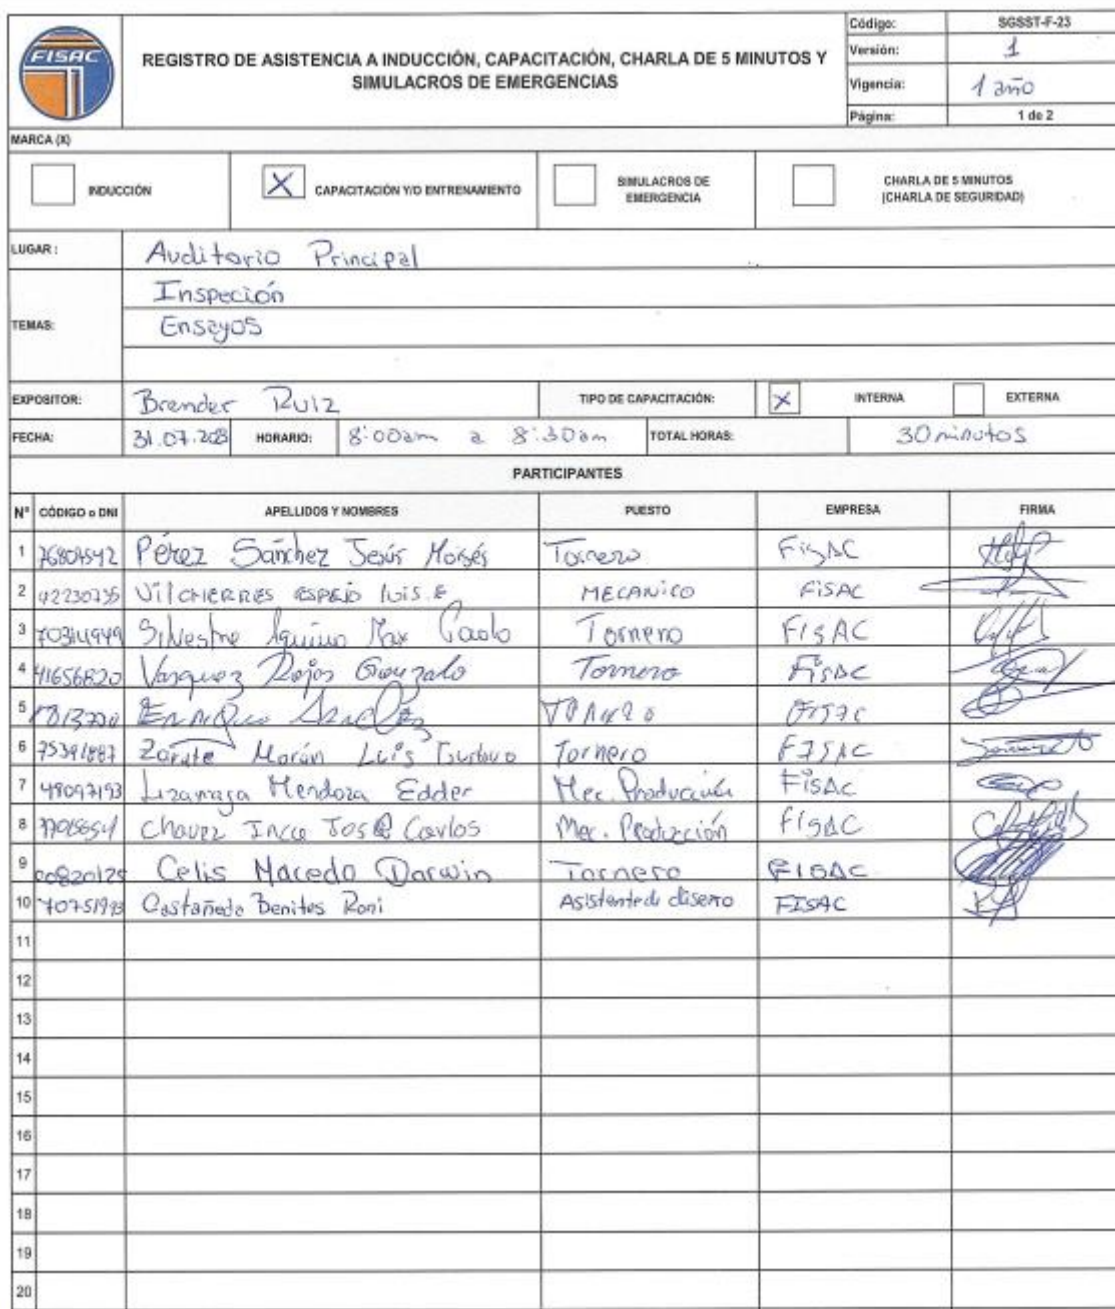 FISAC
REGISTRO DE ASISTENCIA A INDUCCIÓN, CAPACITACIÓN, CHARLA DE 5 MINUTOS Y
SIMULACROS DE EMERGENCIAS
Código: SGSST-F-23
Versión: 1
Vigencia: 1 año
Página: 1 de 2
MARCA (X)
INDUCCIÓN
X CAPACITACIÓN Y/O ENTRENAMIENTO
SIMULACROS DE
EMERGENCIA
CHARLA DE 5 MINUTOS
(CHARLA DE SEGURIDAD)
LUGAR : Auditorio Principal
TEMAS: Inspeción
Ensayos
EXPOSITOR: Brender Ruiz TIPO DE CAPACITACIÓN: X INTERNA EXTERNA
FECHA: 31.07. HORARIO: 8:00am a 8:30am TOTAL HORAS: 30 minutos
PARTICIPANTES
N° CÓDIGO o DNI APELLIDOS Y NOMBRES PUESTO EMPRESA FIRMA
1 Pérez Sánchez Jesús Moisés Tornero FisAC
2 42230735 VilCHERRES ESPEJO luis.E MECANICO FiSAC
3 Silvestre Aquino Max Tornero FISAC
4 41656820 Vasquez Rojas Gonzalo Tornero FiSAC
5 Enrique
6 Zarate Morán Luis Tornero FISAC
7 48097193 Lizarraga Mendoza Edder Mec. Producción FiSAC
8 Chavez Inca José Carlos Mec. Producción fISAC
9 Celis Macedo Darwin Tornero FISAC
10 Castañeda Benites Roni Asistente de diseño FISAC
11
12
13
14
15
16
17
18
19
20